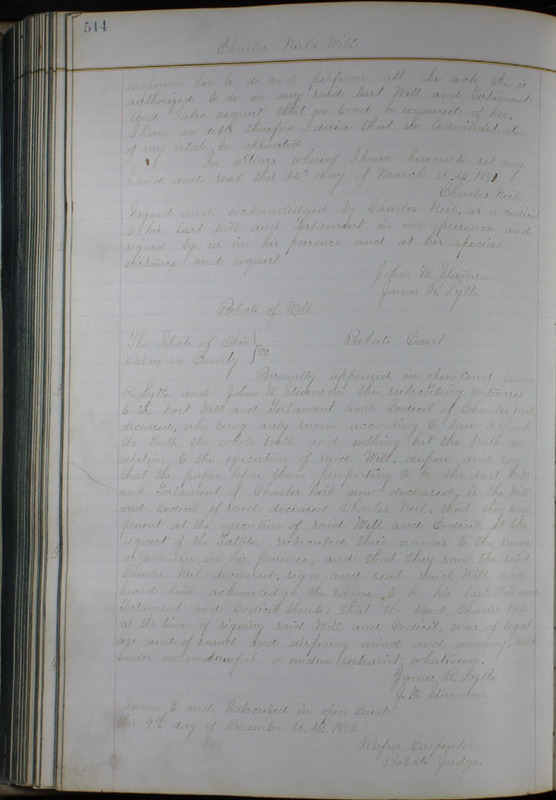 514
Charles Neil's Will
empower her to do and perform all the acts she is
authorized to do in my said last Will and Testament
and I also request that no bond be required of her.
I have no debts therefore I desire that no administrator
of my estate be appointed
In witness whereof I have hereunto set my
hand and seal this 26th day of March A.D. 1881
Charles Neil
Signed and acknowledged by Charles Neil, as a codicil
to his last will and Testament in our presence and
signed by us in his presence and at his special
instance and request
John W. Stevenson
James R. Lytle
Probate of Will
The State of Ohio
Delaware County } ss. Probate Court
Personally appeared in open Court James
R. Lytle and John W. Stevenson the subscribing witnesses
to the last Will and Testament and Codicil of Charles Neil
deceased, who being duly sworn according to law to speak
the truth, the whole truth and nothing but the truth in
relation to the execution of said Will, depose and say
that the paper before them purporting to be the last Will
and Testament of Charles Neil now deceased, is the Will
and Codicil of said deceased Charles Neil, that they were
present at the execution of said Will and Codicil at the
request of the Testator subscribed their names to the same
as witnesses, in his presence, and that they saw the said
Charles Neil deceased, sign and seal said Will and
heard him acknowledge the same to be his last Will and
Testament and Codicil thereto; that the said Charles Neil
at the time of signing said Will and Codicil, was of legal
age and of sound and disposing mind and memory, and
under no unlawful or undue restraint, whatsoever.
James R. Lytle
J. W. Stevenson
Sworn to and Subscribed in open Court
this 9th day of December A.D. 1882
Rufus Carpenter
Probate Judge